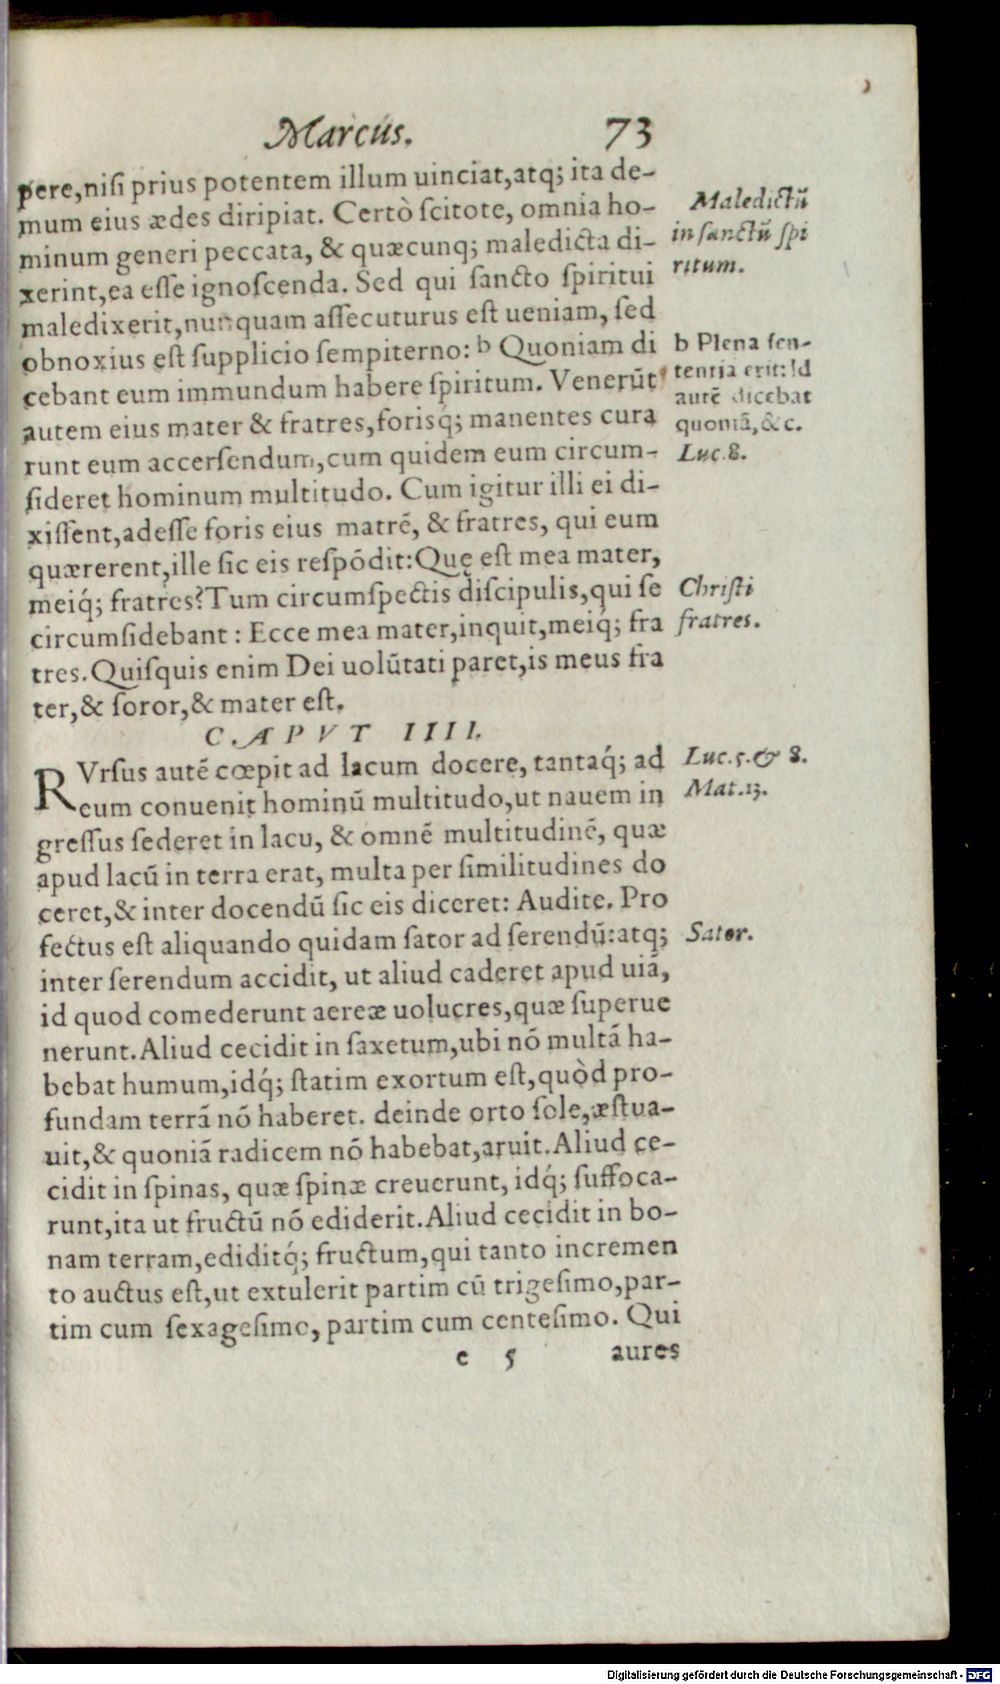 Marcus. 73
pere,niſi prius potentem illum uinciat,atq; ita de-
mum eius ædes diripiat. Certò ſcitote, omnia ho-
minum generi peccata, & quæcunq; maledicta di-
xerint,ea eſſe ignoſcenda. Sed qui ſancto ſpiritui
maledixerit,nunquam aſſecuturus eſt ueniam, ſed
obnoxius eſt ſupplicio ſempiterno: b Quoniam di
cebant eum immundum habere ſpiritum. Venerūt
autem eius mater & fratres,forisq́; manentes cura
runt eum accerſendum,cum quidem eum circum-
ſideret hominum multitudo. Cum igitur illi ei di-
xiſſent,adeſſe foris eius matrē, & fratres, qui eum
quærerent,ille ſic eis reſpōdit:Quę eſt mea mater,
meiq́; fratres? Tum circumſpectis diſcipulis,qui ſe
circumſidebant : Ecce mea mater,inquit,meiq; fra
tres. Quiſquis enim Dei uolūtati paret,is meus fra
ter,& ſoror,& mater eſt.
Maledictū
in ſanctū ſpi
ritum.
b Plena ſen-
tentia erit: Id
autē dicebat
quoniā,&c.
Luc.8.
Chriſti
fratres.
CAPVT IIII.
RVrſus autē cœpit ad lacum docere, tantaq́; ad
eum conuenit hominū multitudo,ut nauem in
greſſus ſederet in lacu, & omnē multitudinē, quæ
apud lacū in terra erat, multa per ſimilitudines do
ceret,& inter docendū ſic eis diceret: Audite. Pro
fectus eſt aliquando quidam ſator ad ſerendū:atq;
inter ſerendum accidit, ut aliud caderet apud uiā,
id quod comederunt aereæ uolucres,quæ ſuperue
nerunt.Aliud cecidit in ſaxetum,ubi nō multā ha-
bebat humum,idq́; ſtatim exortum eſt,quòd pro-
fundam terrā nō haberet. deinde orto ſole,æſtua-
uit,& quoniā radicem nō habebat,aruit.Aliud ce-
cidit in ſpinas, quæ ſpinæ creuerunt, idq́; ſuffoca-
runt,ita ut fructū nō ediderit.Aliud cecidit in bo-
nam terram,ediditq́; fructum,qui tanto incremen
to auctus eſt,ut extulerit partim cū trigeſimo,par-
tim cum ſexageſimo, partim cum centeſimo. Qui
Luc.5.& 8.
Mat.13.
Sator.
e 5 aures
Digitalisierung gefördert durch die Deutsche Forschungsgemeinschaft - DFG